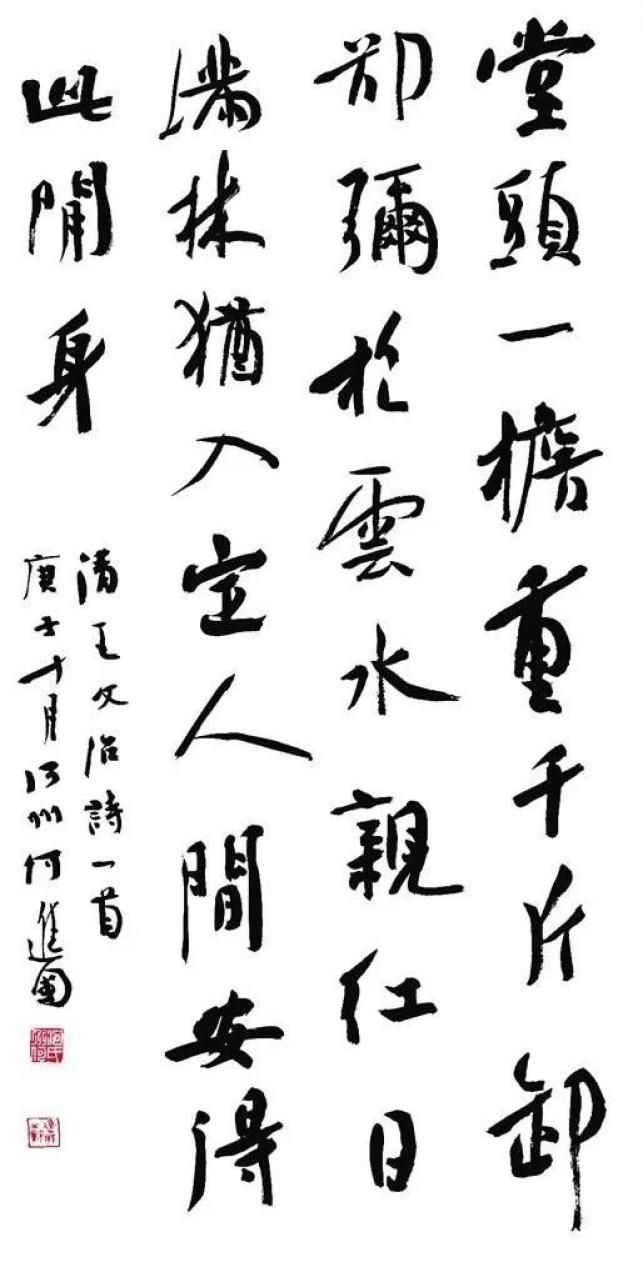 堂頭一擔重千斤卸
却彌於雲水親紅日
滿林猶入定人間安得
此閒身
清王文治詩一首
庚子十月河州何進國